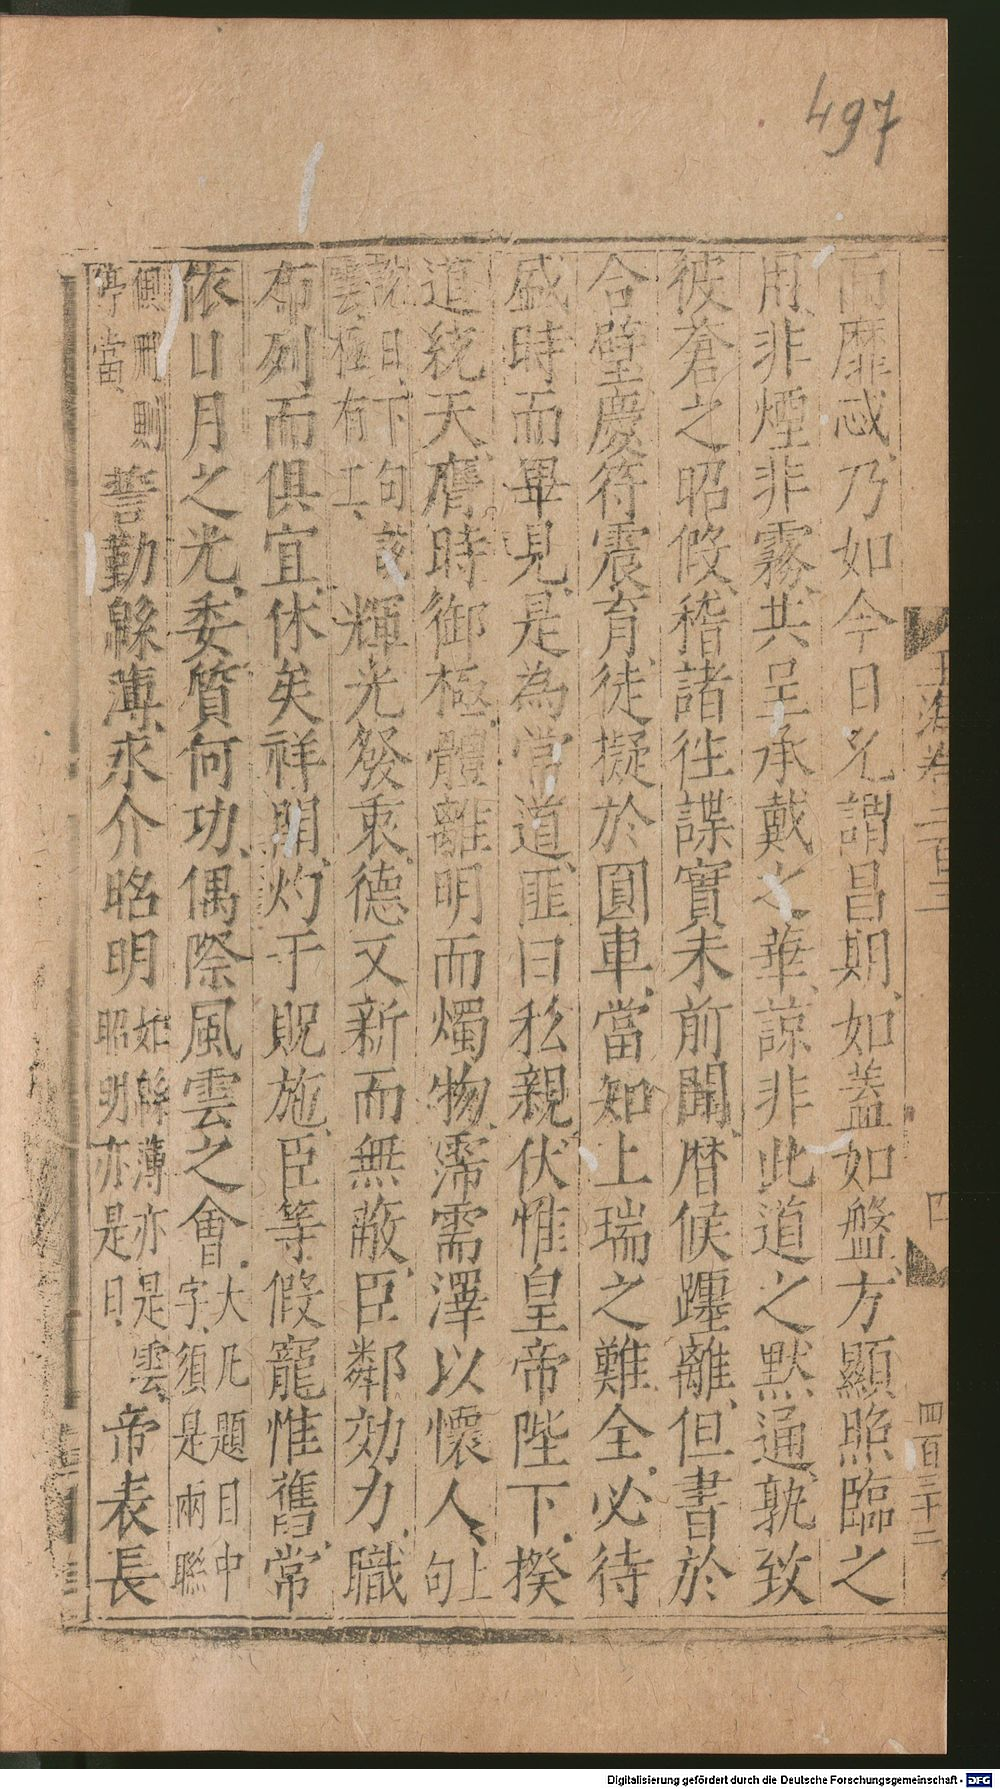 497
玉海卷二百二 四 四百三十二
而靡忒乃如今日允謂昌期如蓋如盤方顯照臨之
用非煙非霧共呈承戴之華諒非此道之默通孰致
彼蒼之昭假稽諸往諜實未前聞曆候躔離但書於
合璧慶符震育徒擬於圓車當知上瑞之難全必待
盛時而畢見是為常道匪曰私親伏惟皇帝陛下揆
道統天膺時御極體離明而燭物霈需澤以懷人上句
說日下句說雲極有工輝光發衷德又新而無敵臣鄰効力職
布列而俱宜休矣祥開灼于貺施臣等假寵惟舊常
依日月之光委質何功偶際風雲之會大凡題目中字須是兩聯
俱刪則停當誓勤緜薄永介昭明如緜薄亦是雲昭明亦是日帝表長
Digitalisierung gefördert durch die Deutsche Forschungsgemeinschaft - DFG